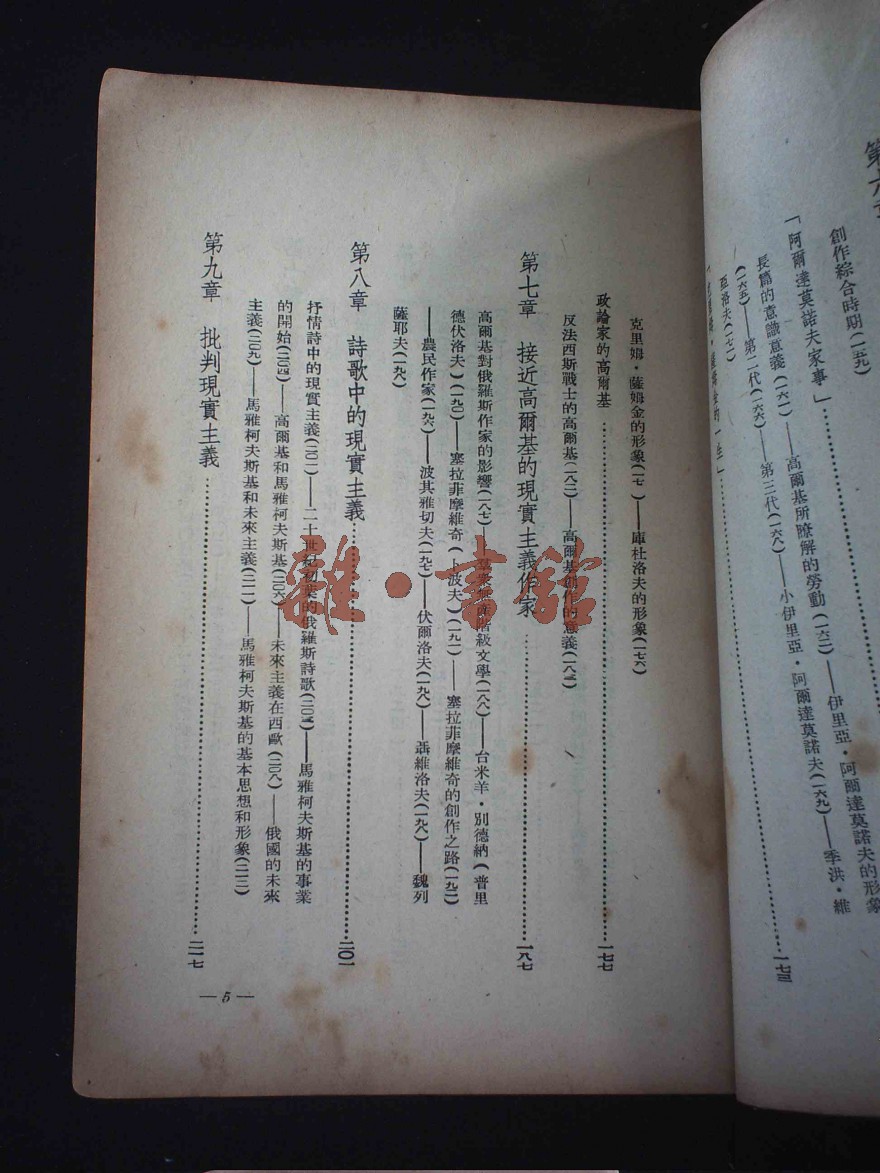 創作綜合時期(一五九)
「阿爾達莫諾夫家事」
長篇的意識意義(一六一)——高爾基所瞭解的勞動(一六二)——伊里亞·阿爾達莫諾夫的形象
(一六五)——第二代(一六六)——第三代(一六八)——小伊里亞·阿爾達莫諾夫(一六九)——季洪·維
亞洛夫(一七一)
一七三
克里姆·薩姆金的形象(一七 )——庫杜洛夫的形象(一七六)
政論家的高爾基……一七七
反法西斯戰士的高爾基(一八二)——高爾基創作的意義(一八三)
第七章 接近高爾基的現實主義作家……一八七
高爾基對俄羅斯作家的影響(一八七)——羣衆無產階級文學(一八八)——台米羊·別德納(普里
德伏洛夫)(一九〇)——塞拉菲摩維奇(卜波夫)(一九一)——塞拉菲摩維奇的創作之路(一九二)
——農民作家(一九六)——波其雅切夫(一九七)——伏爾洛夫(一九八)——聶維洛夫(一九八)——魏列
薩耶夫(一九八)
第八章 詩歌中的現實主義……二〇一
抒情詩中的現實主義(二〇一)——二十世紀初葉的俄羅斯詩歌(二〇三)——馬雅柯夫斯基的事業
的開始(二〇四)——高爾基和馬雅柯夫斯基(二〇六)——未來主義在西歐(二〇八)——俄國的未來
主義(二〇九)——馬雅柯夫斯基和未來主義(二一一)——馬雅柯夫斯基的基本思想和形象(二一三)
第九章 批判現實主義……二一七
— 5 —
雜·書館